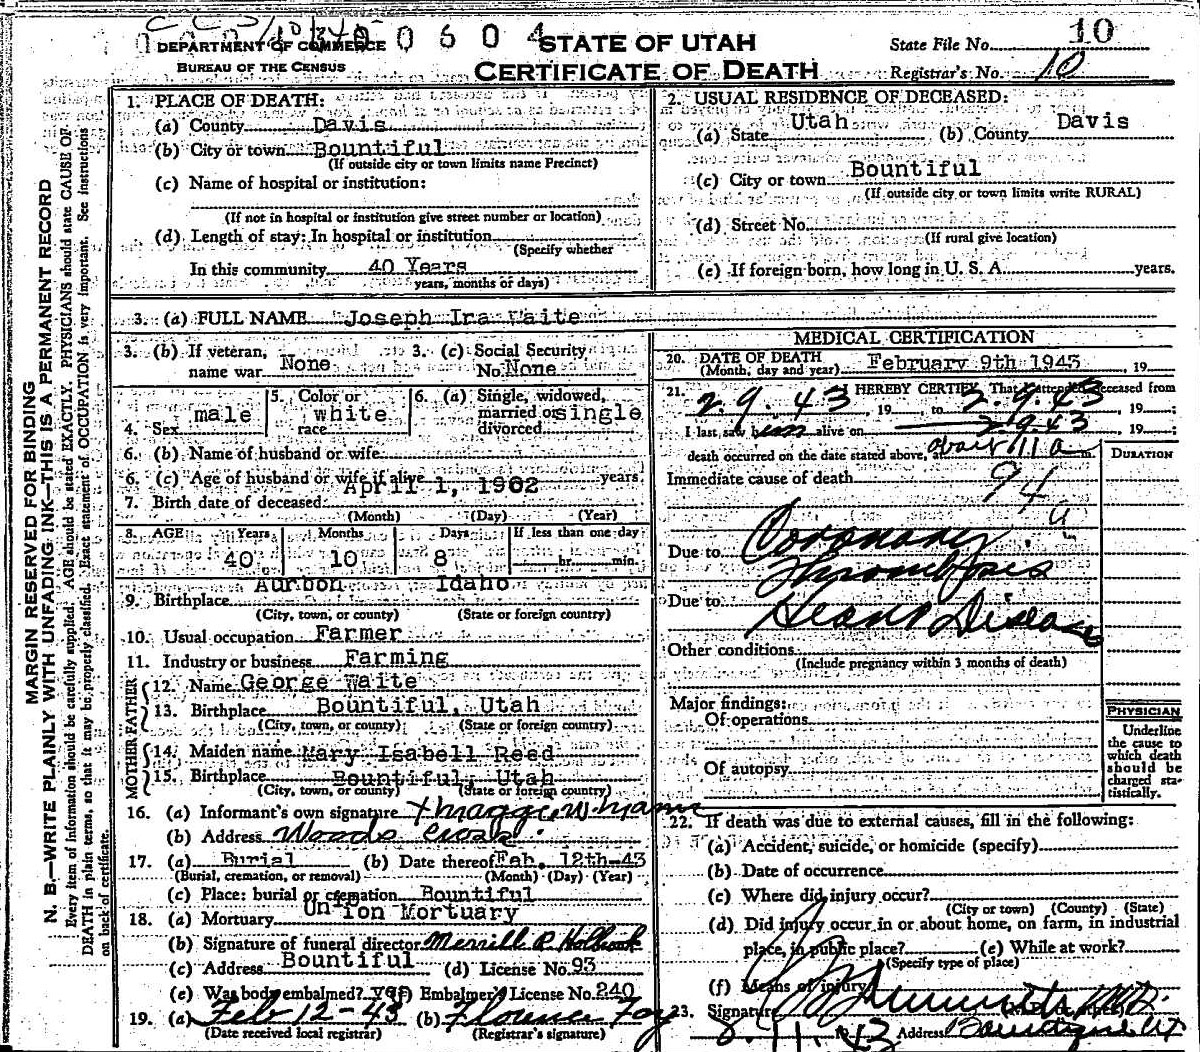 0604
DEPARTMENT OF COMMERCE
BUREAU OF THE CENSUS
STATE OF UTAH
CERTIFICATE OF DEATH
State File No. 10
Registrar's No. 10
MARGIN RESERVED FOR BINDING
N. B.—WRITE PLAINLY WITH UNFADING INK—THIS IS A PERMANENT RECORD
Every item of information should be carefully supplied. AGE should be stated EXACTLY. PHYSICIANS should state CAUSE OF
DEATH in plain terms, so that it may be properly classified. Exact statement of OCCUPATION is very important. See instructions
on back of certificate.
1. PLACE OF DEATH:
(a) County Davis
(b) City or town Bountiful
(If outside city or town limits name Precinct)
(c) Name of hospital or institution:
(If not in hospital or institution give street number or location)
(d) Length of stay: In hospital or institution
(Specify whether
In this community 40 Years
years, months or days)
2. USUAL RESIDENCE OF DECEASED:
(a) State Utah (b) County Davis
(c) City or town Bountiful
(If outside city or town limits write RURAL)
(d) Street No.
(If rural give location)
(e) If foreign born, how long in U. S. A. years.
3. (a) FULL NAME Joseph Ira Waite
3. (b) If veteran, name war None
3. (c) Social Security No. None
4. Sex male
5. Color or race white
6. (a) Single, widowed, married or divorced single
6. (b) Name of husband or wife
6. (c) Age of husband or wife if alive years
7. Birth date of deceased April 1, 1902
(Month) (Day) (Year)
8. AGE Years Months Days If less than one day
40 10 8 hr. min.
9. Birthplace Aurbon Idaho
(City, town, or county) (State or foreign country)
10. Usual occupation Farmer
11. Industry or business Farming
FATHER
12. Name George Waite
13. Birthplace Bountiful, Utah
(City, town, or county) (State or foreign country)
MOTHER
14. Maiden name Mary Isabell Reed
15. Birthplace Bountiful, Utah
(City, town, or county) (State or foreign country)
16. (a) Informant's own signature x Maggie W. Mann
(b) Address Woods Cross
17. (a) Burial (b) Date thereof Feb. 12th-43
(Burial, cremation, or removal) (Month) (Day) (Year)
(c) Place: burial or cremation Bountiful
18. (a) Mortuary Union Mortuary
(b) Signature of funeral director Merrill R Holbrook
(c) Address Bountiful (d) License No. 93
(e) Was body embalmed? yes (f) Embalmer's License No. 240
19. (a) Feb 12-43 (b) Florence Foy
(Date received local registrar) (Registrar's signature)
MEDICAL CERTIFICATION
20. DATE OF DEATH February 9th 1943, 19
(Month, day and year)
21. I HEREBY CERTIFY, That I attended deceased from
2.9.43, 19 to 2.9.43, 19 ;
I last saw him alive on 2.9.43, 19 ;
death occurred on the date stated above, at 11 a m.
DURATION
Immediate cause of death
94
a
Due to Coronary
Thrombosis
Due to Heart Disease
Other conditions
(Include pregnancy within 3 months of death)
Major findings:
Of operations
Of autopsy
PHYSICIAN
Underline
the cause to
which death
should be
charged sta-
tistically.
22. If death was due to external causes, fill in the following:
(a) Accident, suicide, or homicide (specify)
(b) Date of occurrence
(c) Where did injury occur?
(City or town) (County) (State)
(d) Did injury occur in or about home, on farm, in industrial
place, in public place? (e) While at work?
(Specify type of place)
(f) Means of injury
23. Signature M.D.
2.11.43 Address Bountiful Ut